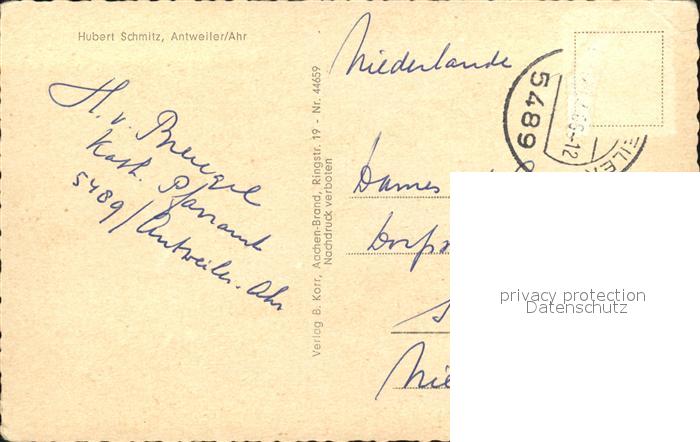 Hubert Schmitz, Antweiler/Ahr
H. v.
Kath. Pfarramt
5489/Antweiler-Ahr
Verlag B. Korr, Aachen-Brand, Ringstr. 19 - Nr. 44659
Nachdruck verboten
Niederlande
5489
-12
Dames
Dorps
Nie
privacy protection
Datenschutz